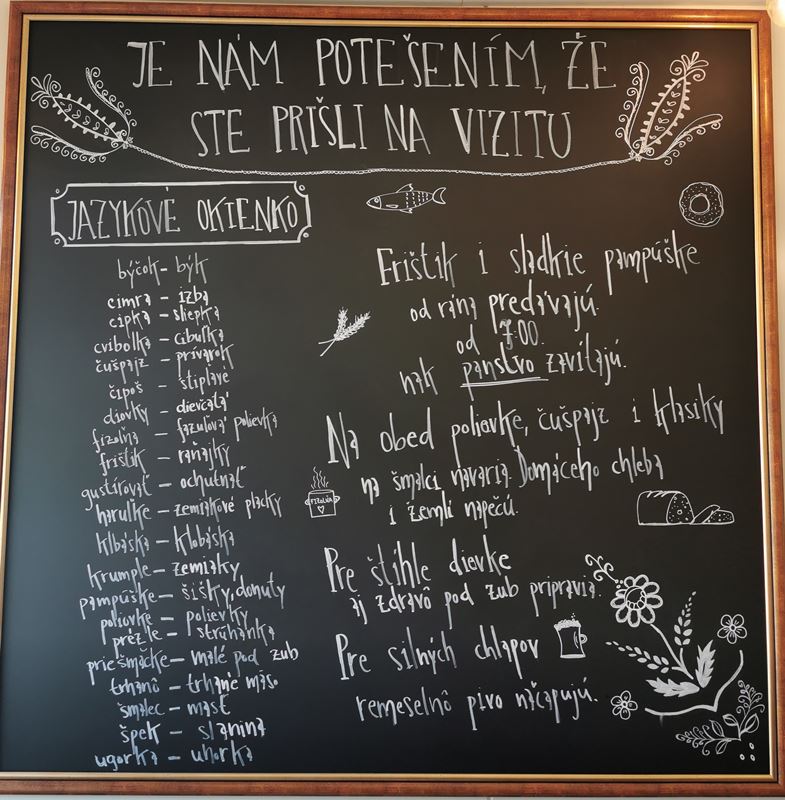 JE NÁM POTEŠENÍM, ŽE
STE PRIŠLI NA VIZITU
JAZYKOVÉ OKIENKO
býčok - býk
cimra - izba
cipka - sliepka
cvibolka - cibuľka
čušpajz - prívarok
čipôš - štipľavé
dievky - dievčatá
fizolňa - fazuľová polievka
frištik - raňajky
gustírovať - ochutnať
haruľke - zemiakové placky
klbáska - klobáska
krumple - zemiaky
pampúške - šišky, donuty
polievke - polievky
prézle - strúhanka
priešmačke - malé pod zub
trhanô - trhané mäso
šmalec - masť
špek - slanina
ugorka - uhorka
Frištik i sladkie pampúške
od rána predávajú.
od 7:00.
nak panstvo zavítajú.
Na obed polievke, čušpajz i klasiky
na šmalci navaria. Domáceho chleba
i žemlí napečú.
FIZOLŇA
Pre štíhle dievke
aj zdravô pod zub pripravia.
Pre silných chlapov
remeselnô pivo načapujú.